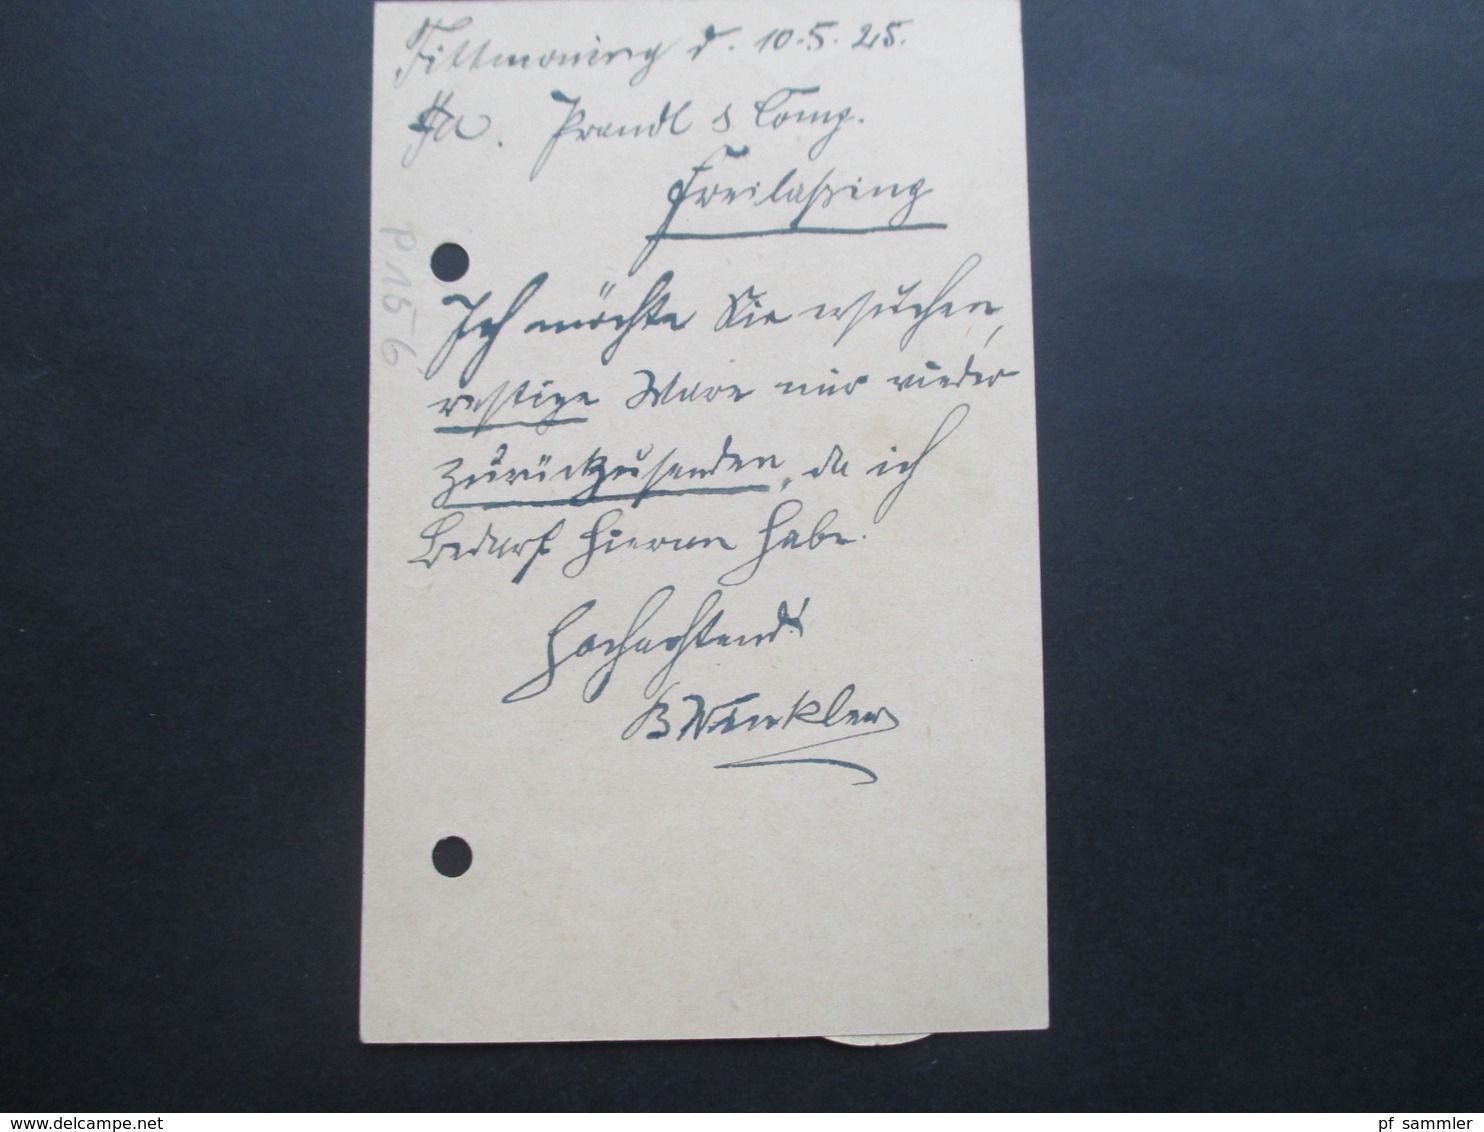 Tittmoning d. 10.5.25.
Fa. Prandl & Comp.
Freilassing
Ich möchte Sie ersuchen,
restige Ware mir wieder
zurückzusenden, da ich
Bedarf hieran habe.
Hochachtend!
B Winkler
P 156
pf sammler
www.delcampe.net